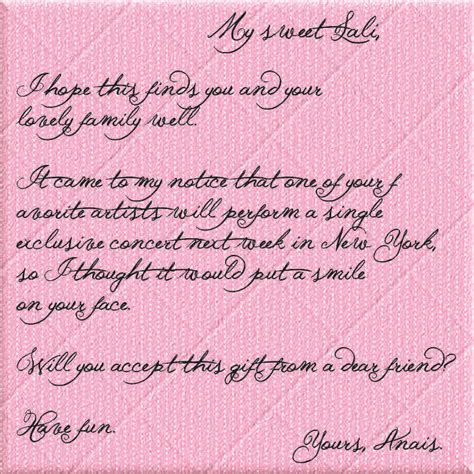 My sweet Lali,
I hope this finds you and your
lovely family well.
It came to my notice that one of your f
avorite artists will perform a single
exclusive concert next week in New York,
so I thought it would put a smile
on your face.
Will you accept this gift from a dear friend?
Have fun.
Yours, Anais.